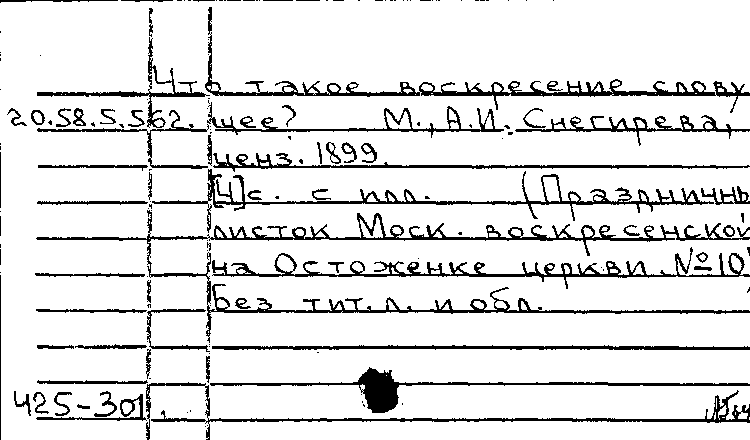 Что такое воскресение слову
20.58.5.562. щее? М., А.И. Снегирева,
ценз. 1899.
[4]с. с илл. (Праздничн
листок Моск. воскресенской
на Остоженке церкви. №10)
Без тит.л. и обл.
425-301.